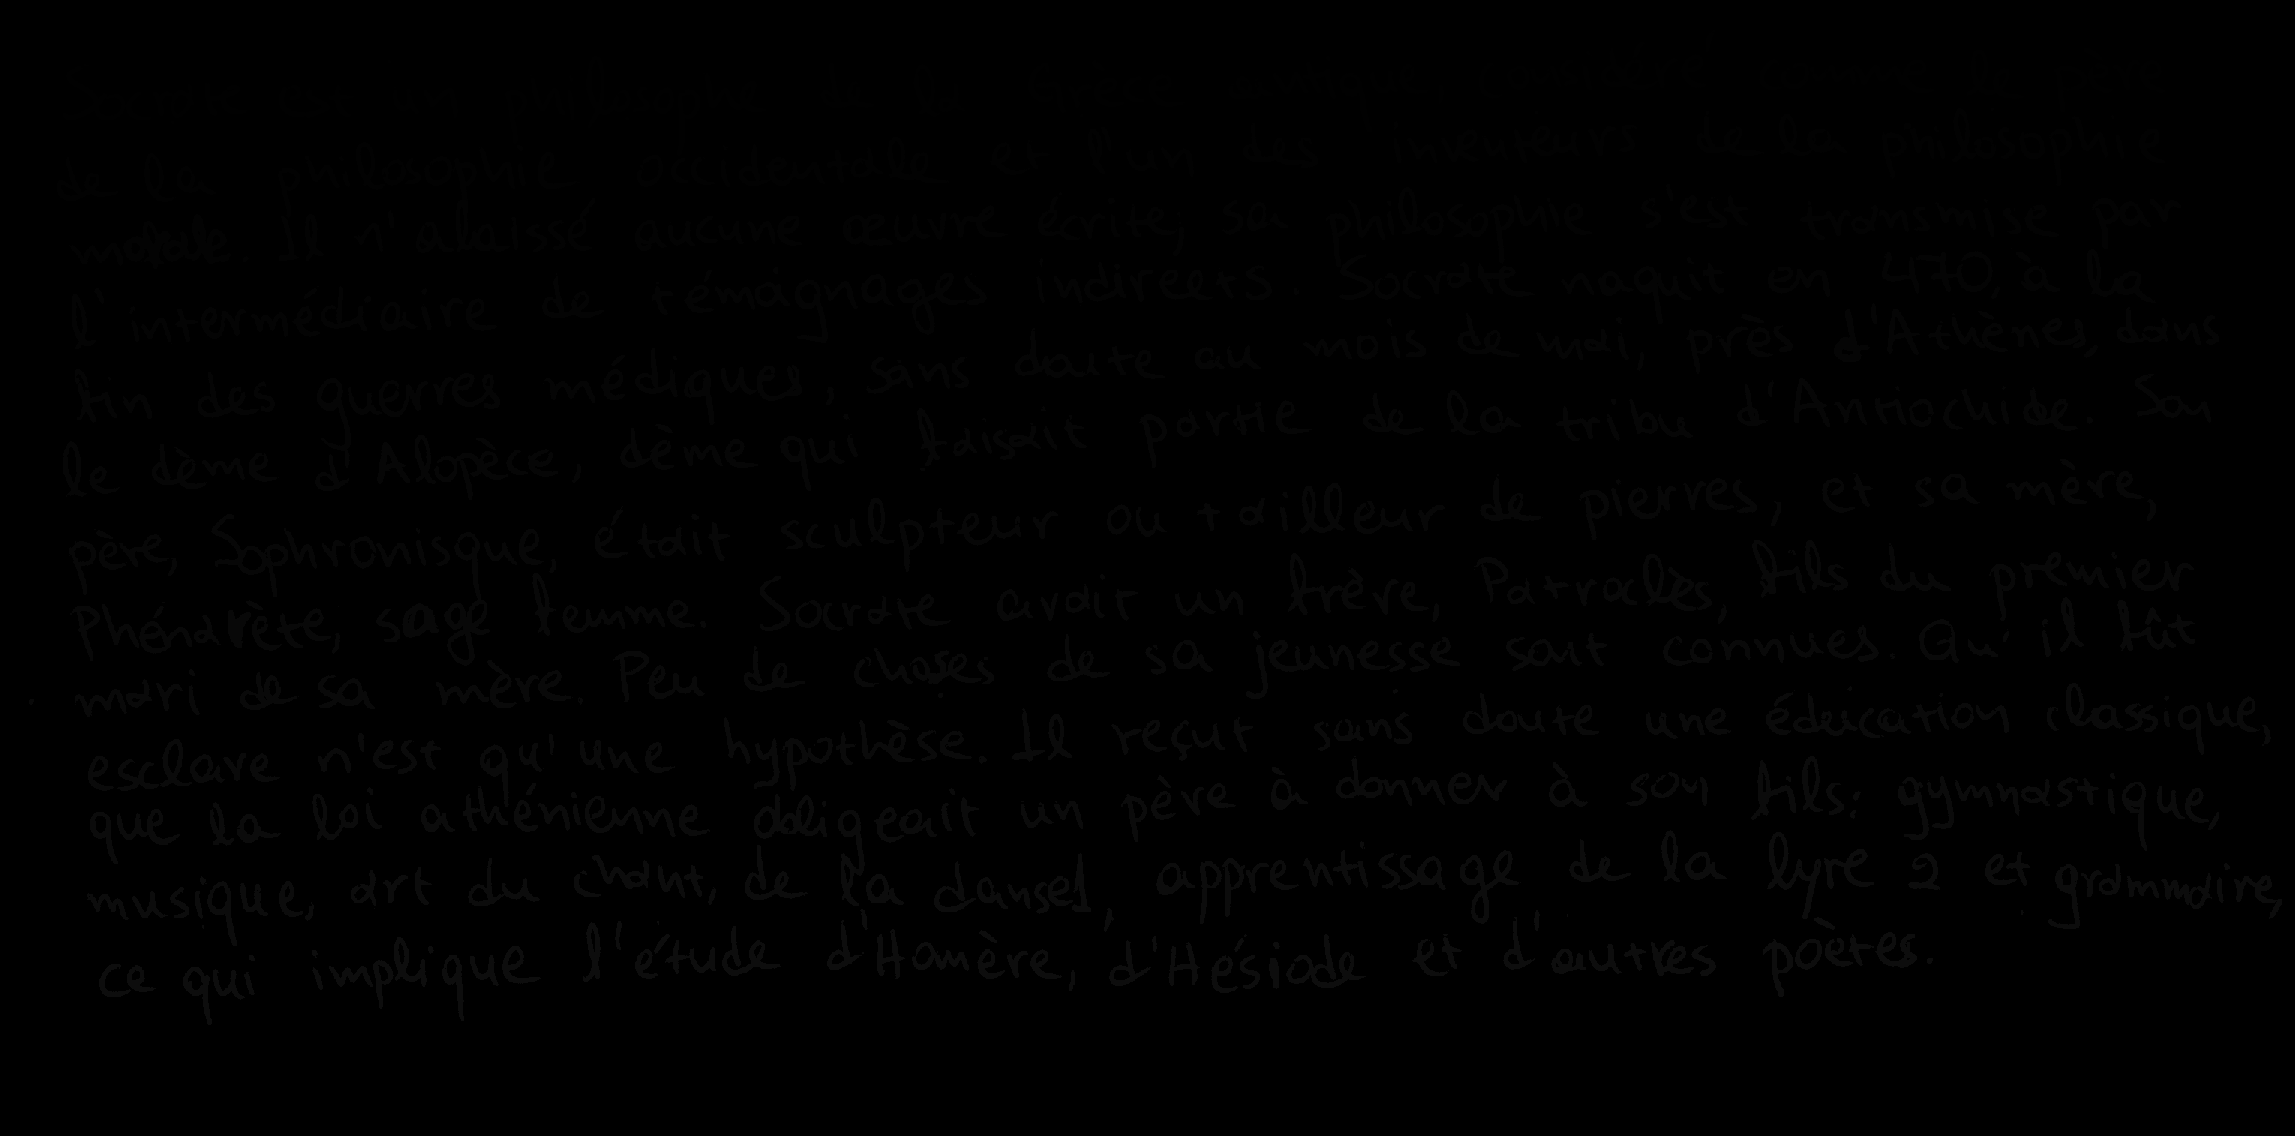 Socrate est un philosophe de la Grèce antique, considéré comme le père
de la philosophie occidentale et l'un des inventeurs de la philosophie
morale. Il n'a laissé aucune œuvre écrite, sa philosophie s'est transmise par
l'intermédiaire de témoignages indirects. Socrate naquit en 470, à la
fin des guerres médiques, sans doute au mois de mai, près d'Athènes, dans
le dème d'Alopèce, dème qui faisait partie de la tribu d'Antiochide. Son
père, Sophronisque, était sculpteur ou tailleur de pierres, et sa mère,
Phénarète, sage femme. Socrate avait un frère, Patroclès, fils du premier
mari de sa mère. Peu de choses de sa jeunesse sont connues. Qu'il fût
esclave n'est qu'une hypothèse. Il reçut sans doute une éducation classique,
que la loi athénienne obligeait un père à donner à son fils: gymnastique,
musique, art du chant, de la danse1, apprentissage de la lyre 2 et grammaire,
ce qui implique l'étude d'Homère, d'Hésiode et d'autres poètes.